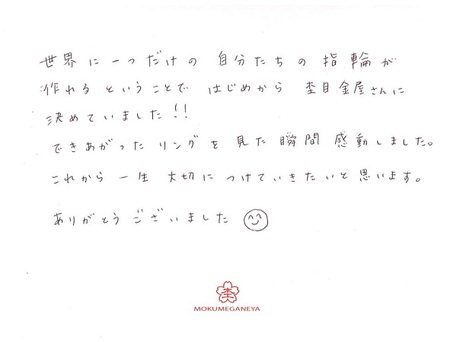 世界に一つだけの自分たちの指輪が
作れるということではじめから杢目金屋さんに
決めていました!!
できあがったリングを見た瞬間感動しました。
これから一生大切につけていきたいと思います。
ありがとうございました
杢
MOKUMEGANEYA